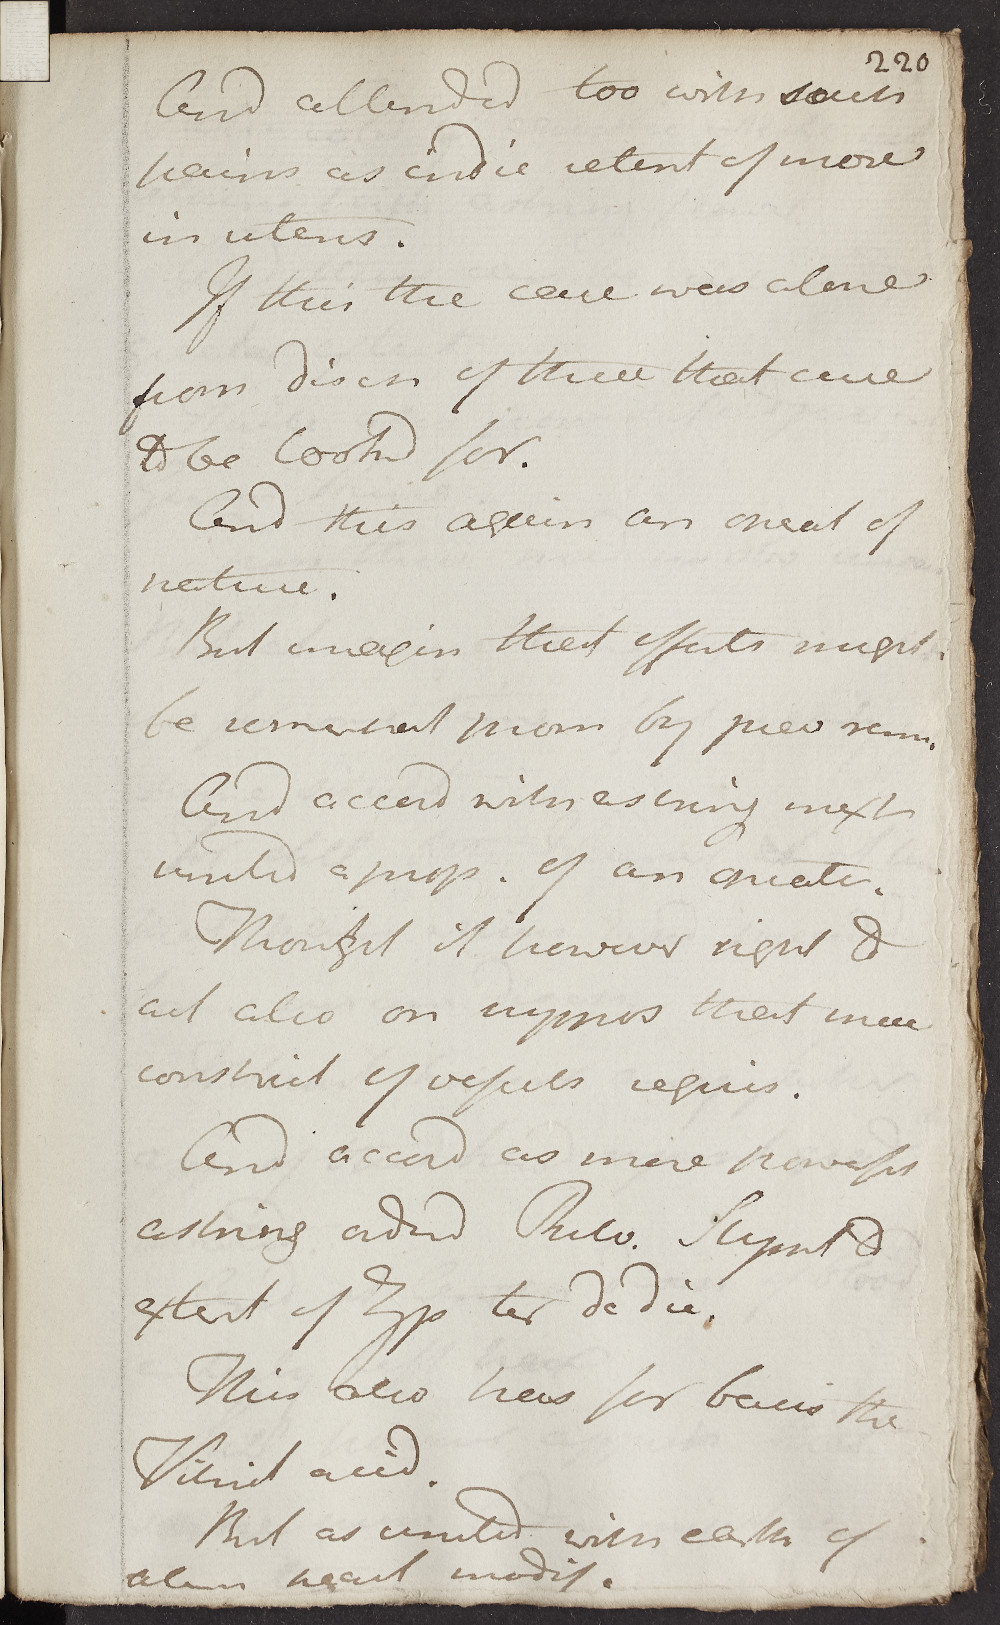 220
And attended too with such
pains as indic retent of more
in uterus.
If this the case was alone
from disch of these that cure
to be lookd for.
And this again an operat of
nature.
But imagin that effects might
be somewhat prom by prev rem.
And accord with astring mixt
united a prop. of an opiate.
Thought it however right to
act also on suppos that mere
constrict of vessels requis.
And accord as more powerful
astring ordered Pulv. Stypt to
extent of ʒſs ter de die.
This also has for basis the
Vitriol acid.
But as united with earth of
alum modif.